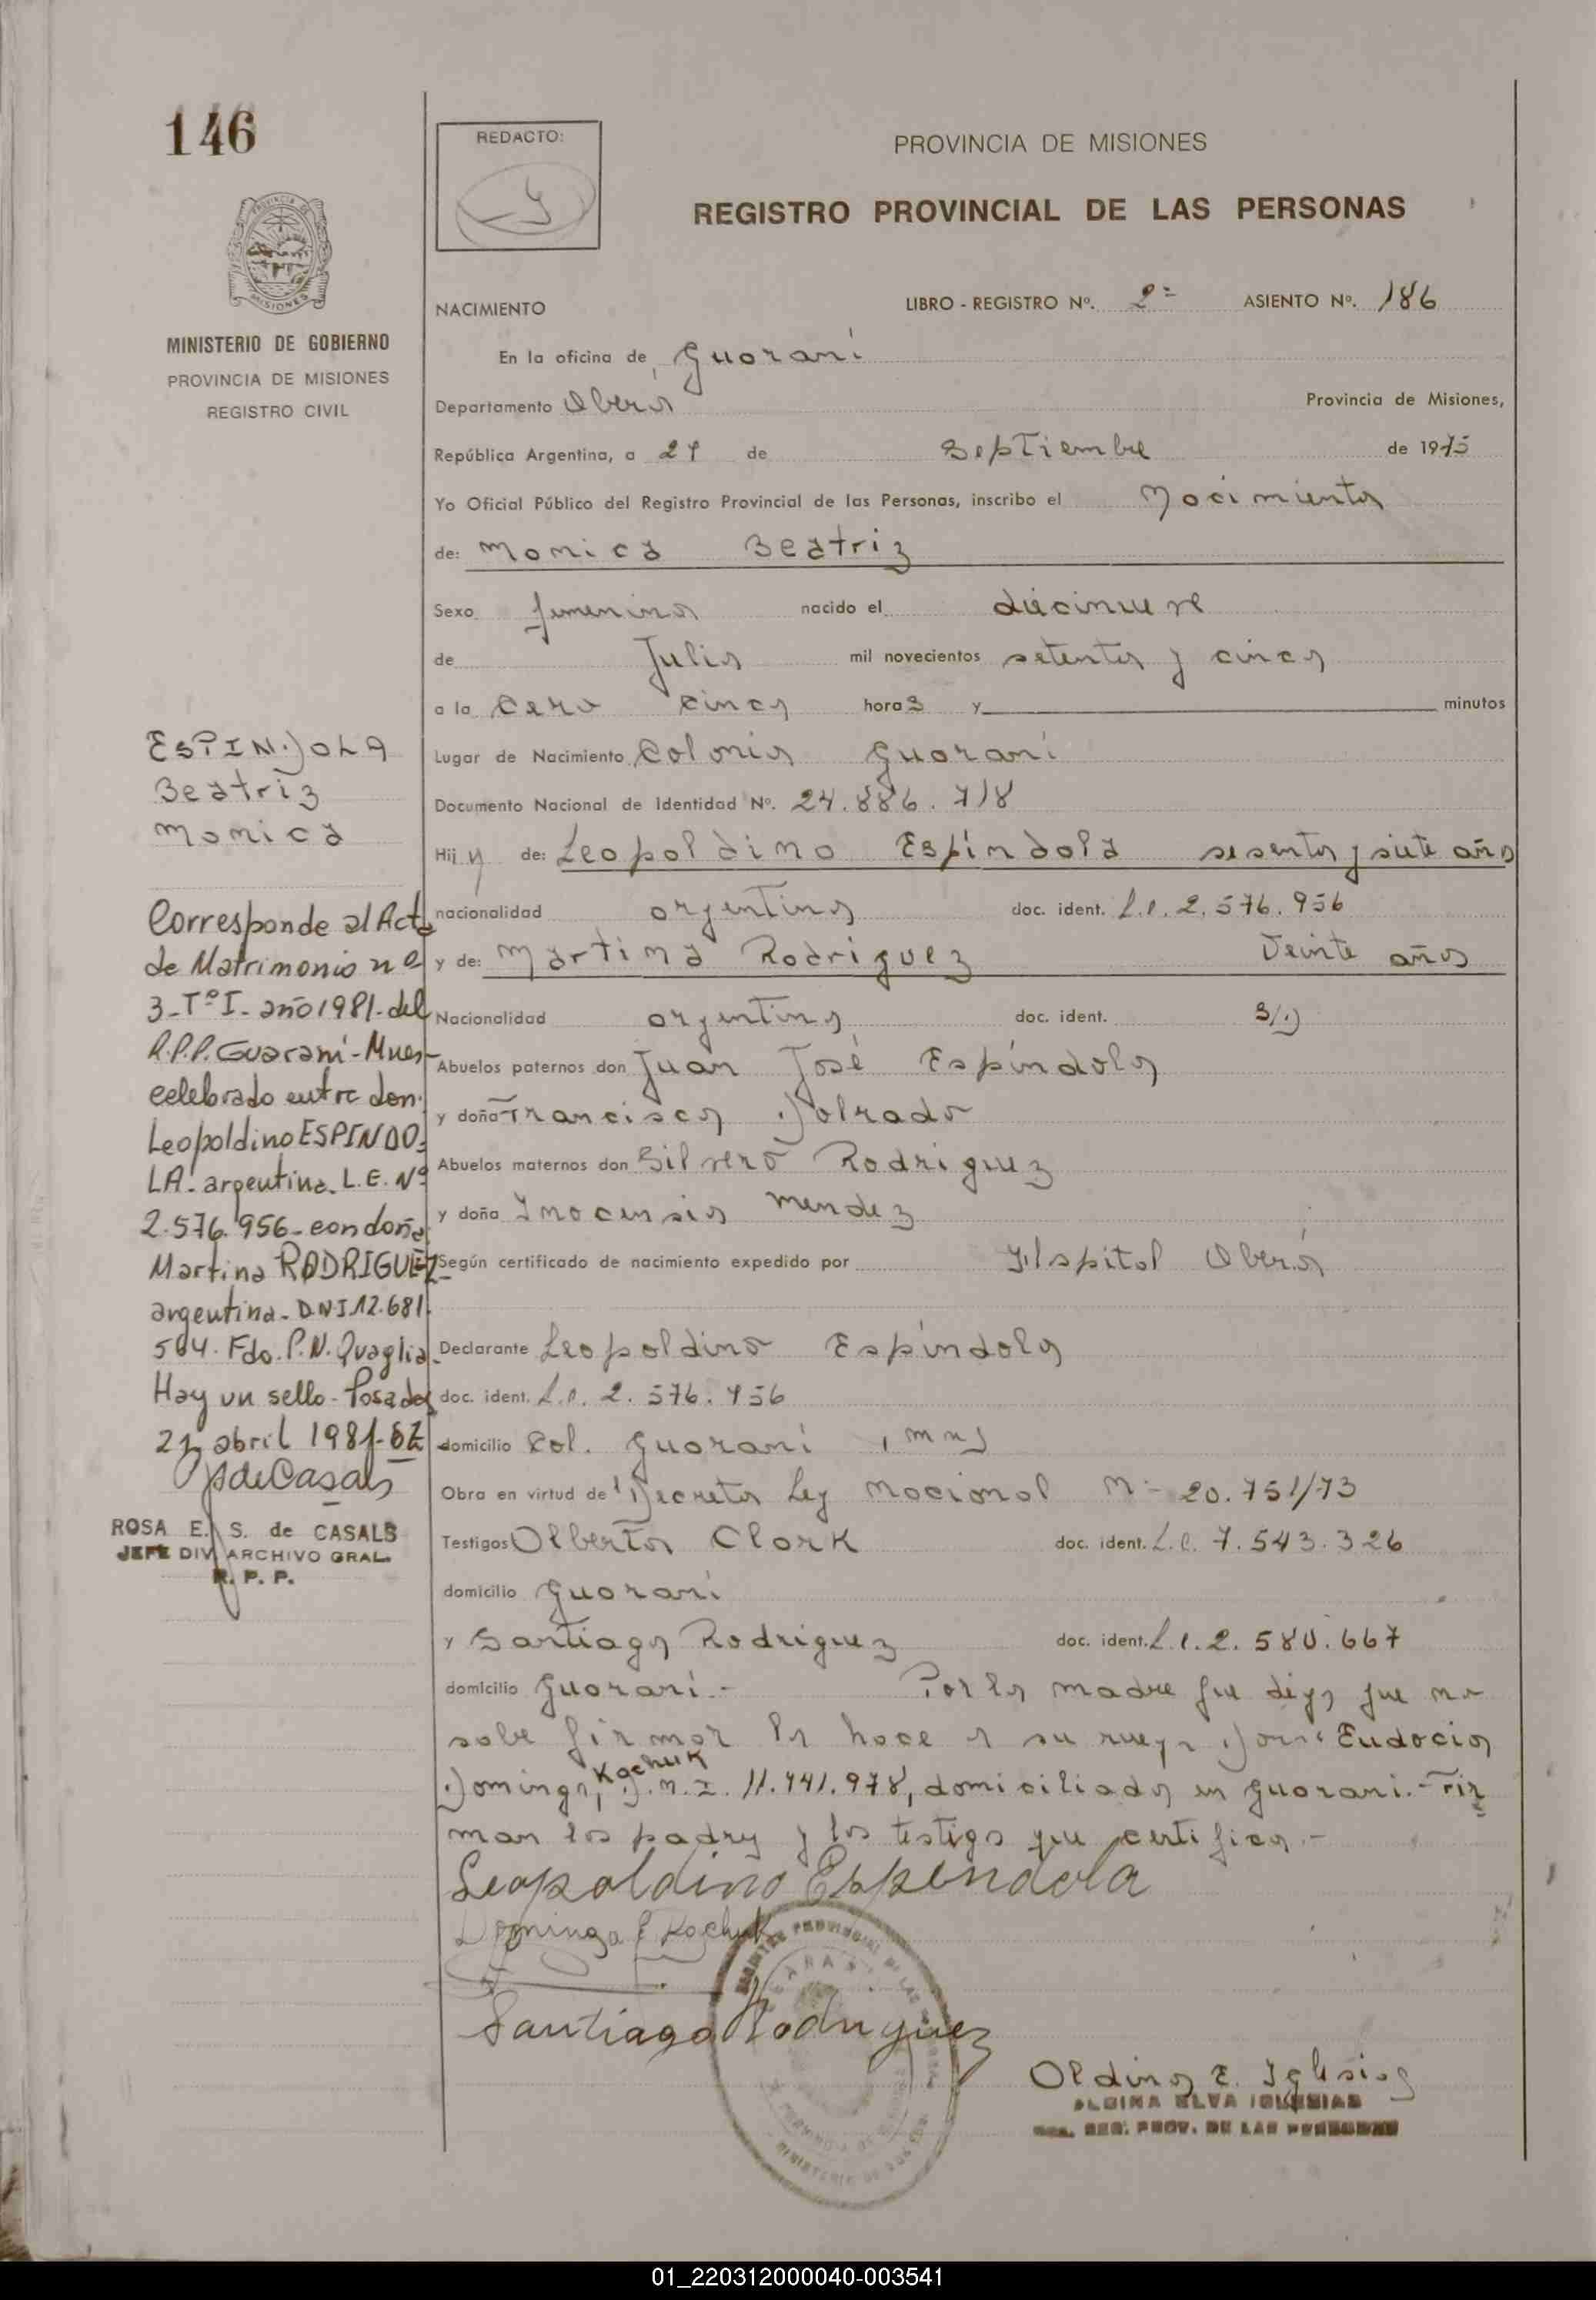 146
REDACTO:
PROVINCIA DE MISIONES
REGISTRO PROVINCIAL DE LAS PERSONAS
MINISTERIO DE GOBIERNO
PROVINCIA DE MISIONES
REGISTRO CIVIL
NACIMIENTO
LIBRO - REGISTRO Nº. 2º ASIENTO Nº. 186
En la oficina de Guarani
Departamento Oberá Provincia de Misiones,
República Argentina, a 24 de Septiembre de 1975
Yo Oficial Público del Registro Provincial de las Personas, inscribo el Nacimiento
de: Monica Beatriz
Sexo femenino nacido el diecinueve
de Julio mil novecientos setenta y cinco
a la cero cinco horas y minutos
Lugar de Nacimiento Colonia Guarani
Documento Nacional de Identidad Nº. 24.886.718
Hija de: Leopoldino Espíndola sesenta y siete años
nacionalidad argentina doc. ident. L.e. 2.576.956
y de: Martina Rodriguez Veinte años
Nacionalidad argentina doc. ident. S/D
Abuelos paternos don Juan José Espíndola
y doña Francisca Dolrado
Abuelos maternos don Silvero Rodriguez
y doña Inocensia Mendez
Según certificado de nacimiento expedido por Hospital Oberá
Declarante Leopoldino Espíndola
doc. ident. L.e. 2.576.956
domicilio Col. Guarani, Mnes
Obra en virtud de Decreto Ley Nacional Nº 20.751/73
Testigos Alberto Clark doc. ident. L.e. 7.543.326
domicilio Guarani
y Santiago Rodriguez doc. ident. L.e. 2.580.667
domicilio Guarani.- Por la madre que dijo que no
sabe firmar lo hace a su ruego Doña Eudocia
Kachuk
Dominga, D.N.I. 11.441.978, domiciliada en Guarani.- Fir
man los padres y los testigo que certifico.-
Leopoldino Espendola
Dominga E Kachuk
Santiago Rodriguez
Aldina E. Iglesias
ALDINA ELVA IGLESIAS
REG. PROV. DE LAS PERSONAS
ESPINDOLA
Beatriz
Monica
Corresponde al Acta
de Matrimonio nº
3-TºI-año 1981-del
R.P.P. Guarani-Mnes-
celebrado entre don
Leopoldino ESPINDO-
LA. argentino. L.E. Nº
2.576.956-con doña
Martina RODRIGUEZ-
argentina-D.N.I 12.681.
504. Fdo. P.N. Quaglia-
Hay un sello-Posadas
abril 1981
ROSA E. S. de CASALS
JEFE DIV. ARCHIVO GRAL.
R. P. P.
01_220312000040-003541